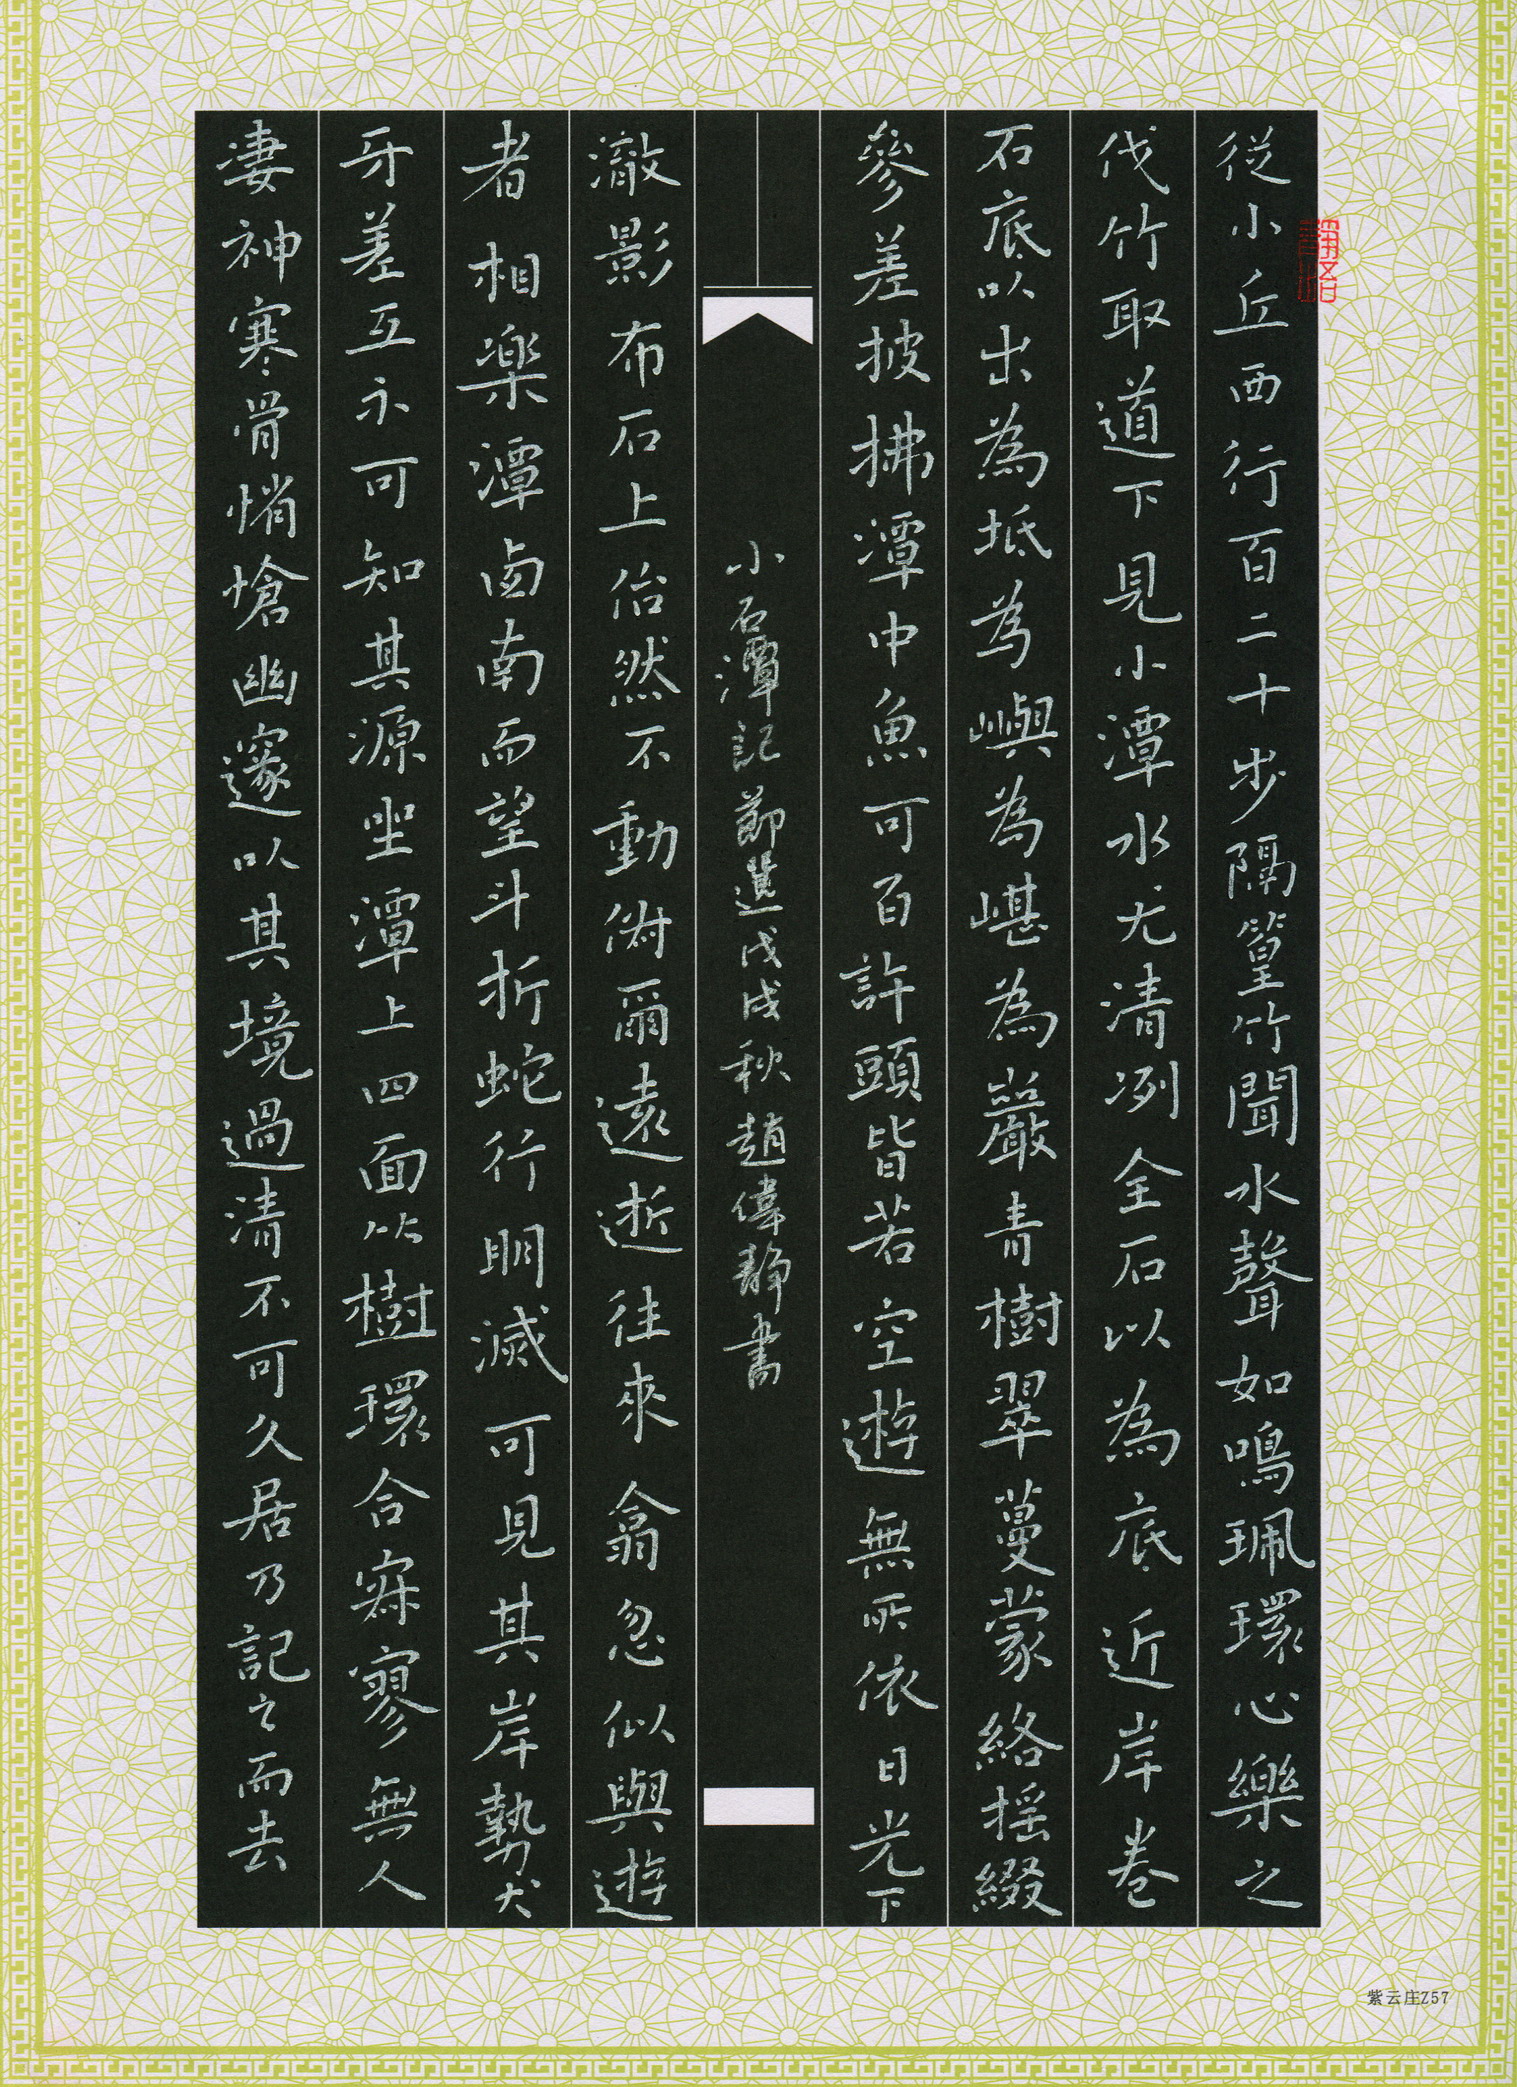 從小丘西行百二十步隔篁竹聞水聲如鳴珮環心樂之
伐竹取道下見小潭水尤清冽全石以為底近岸卷
石底以出為坻為嶼為嵁為巖青樹翠蔓蒙絡摇綴
參差披拂潭中魚可百許頭皆若空遊無所依日光下
小石潭記節選戊戌秋趙偉靜書
澈影布石上佁然不動俶爾遠逝往來翕忽似與遊
者相樂潭西南而望斗折蛇行明滅可見其岸勢犬
牙差互不可知其源坐潭上四面竹樹環合寂寥無人
凄神寒骨悄愴幽邃以其境過清不可久居乃記之而去
紫云庄Z57